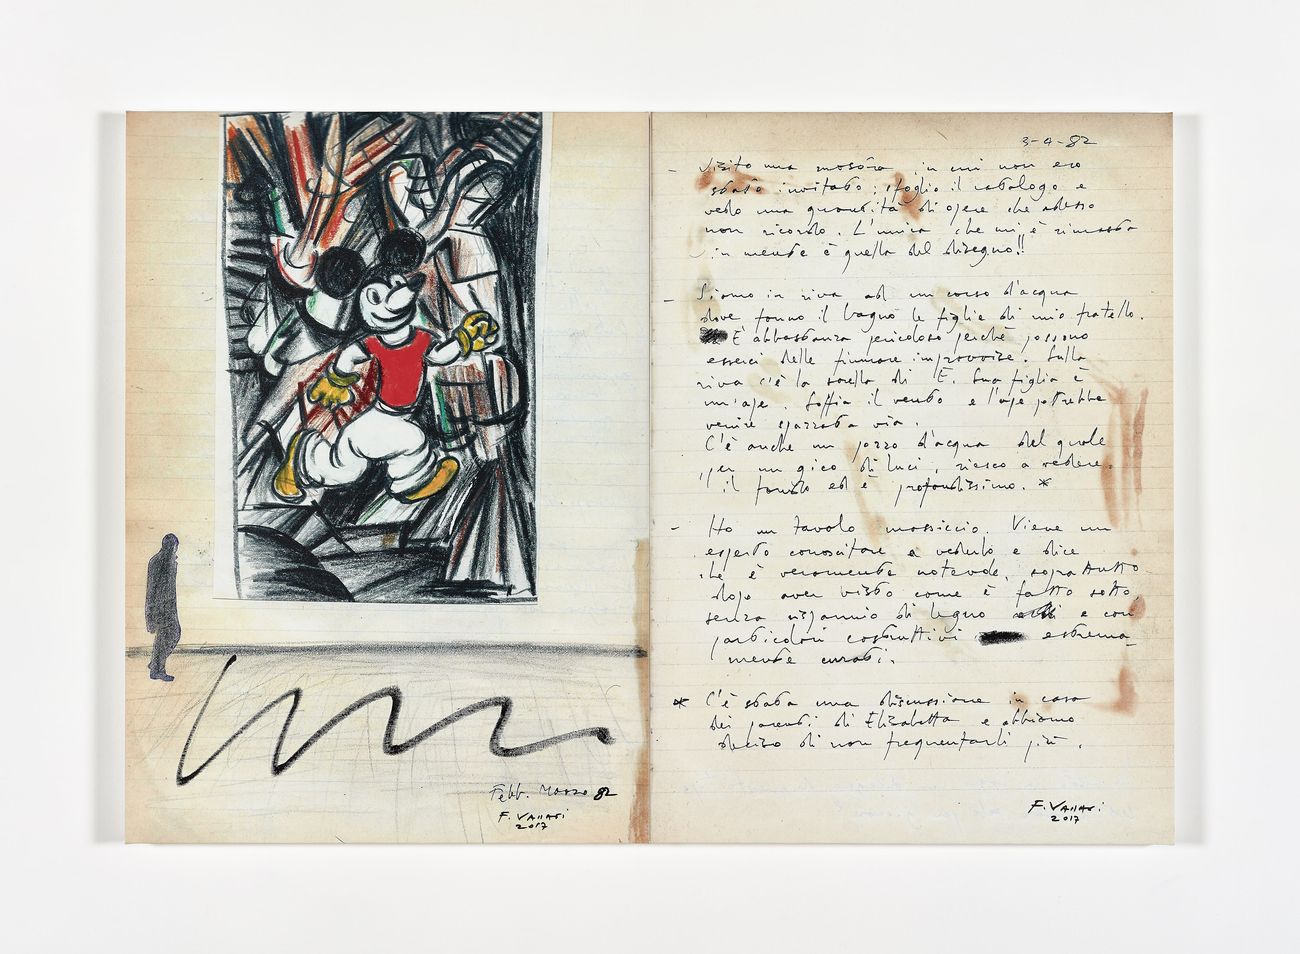 Febb. Marzo 82
F. VACCARI
2017
3-4-82
- Visito una mostra in cui non ero
stato invitato; sfoglio il catalogo e
vedo una quantità di opere che adesso
non ricordo. L'unica che mi è rimasta
in mente è quella del disegno!!
- Siamo in riva ad un corso d'acqua
dove fanno il bagno le figlie di mio fratello.
È abbastanza pericoloso perchè possono
esserci delle fiumare improvvise. Sulla
riva c'è la sorella di E. Sua figlia è
un'ape. Soffia il vento e l'ape potrebbe
venire spazzata via.
C'è anche un pozzo d'acqua del quale
per un gioco di luci, riesco a vedere
il fondo ed è profondissimo. *
- Ho un tavolo massiccio. Viene un
esperto conoscitore a vederlo e dice
che è veramente notevole, soprattutto
dopo aver visto come è fatto sotto,
senza risparmio di legno e con
particolari costruttivi estrema-
mente curati.
* C'è stata una discussione in casa
dei parenti di Elisabetta e abbiamo
deciso di non frequentarli più.
F. VACCARI
2017